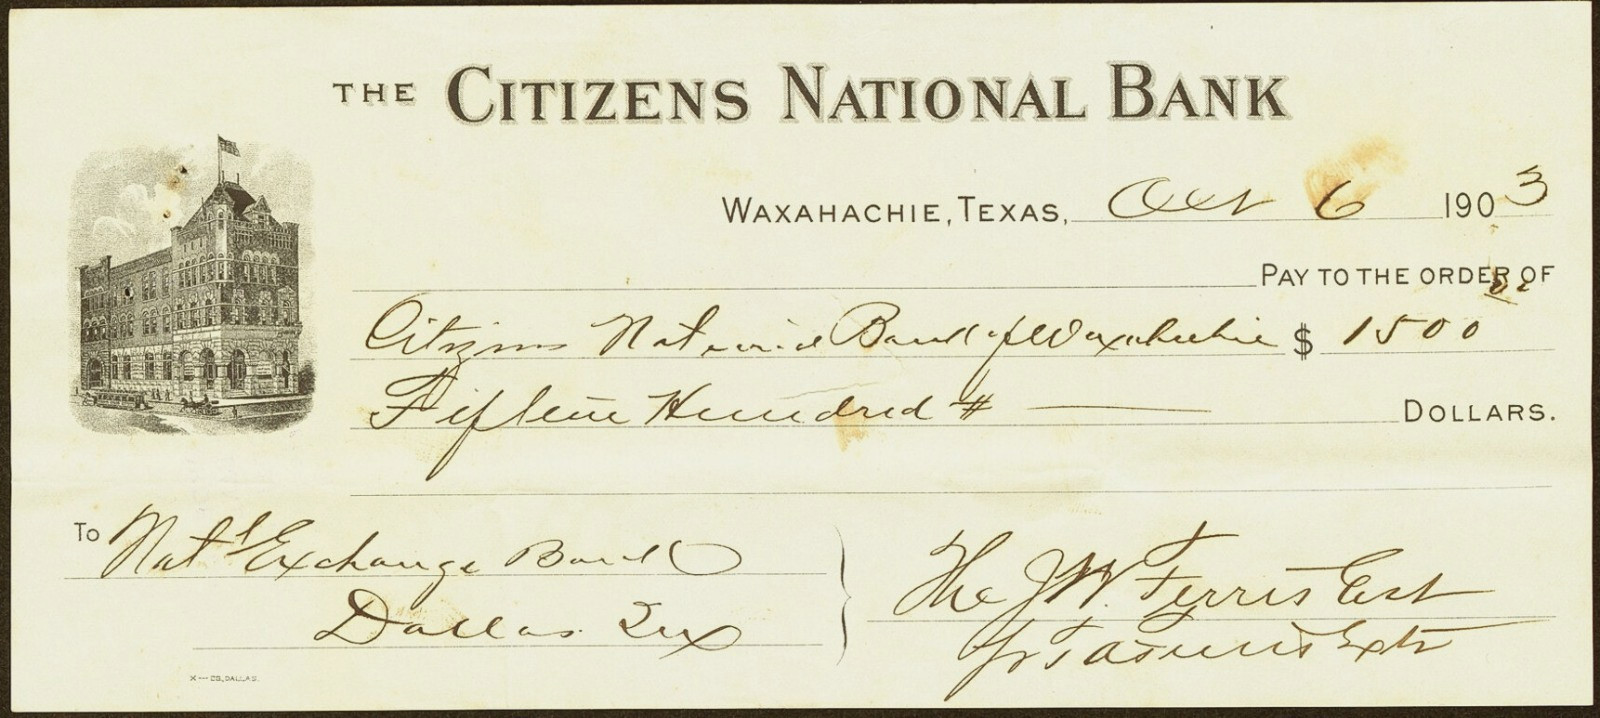 THE CITIZENS NATIONAL BANK
WAXAHACHIE, TEXAS, Oct 6 1903
PAY TO THE ORDER OF
Citizens National Bank of Waxahachie $ 1500
Fifteen Hundred # DOLLARS.
To Nat'l Exchange Bank
Dallas Tex
The J W. Ferris Est
CO., DALLAS.